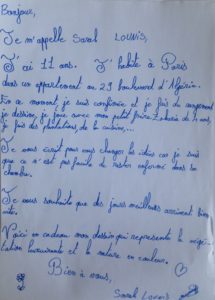 Bonjour,
Je m'appelle Sarah Lounis,
J'ai 11 ans. J'habite à Paris
dans un appartement au 29 boulevard d'Algérie.
En ce moment, je suis confinée et je fais du
je dessine, je joue avec mon petit frère Zakaria de ans,
je fais des plantations de la cuisine,...
Je vous écrit pour vous changer les idées car je sais
que ce n'est pas facile de rester enfermé dans sa
chambre.
Je vous souhaite que des jours meilleurs arrivent bien
Voici en cadeau mon dessin qui représente la végé-
tation luxuriante et la nature en couleur.
Bien à vous,
Sarah Lounis